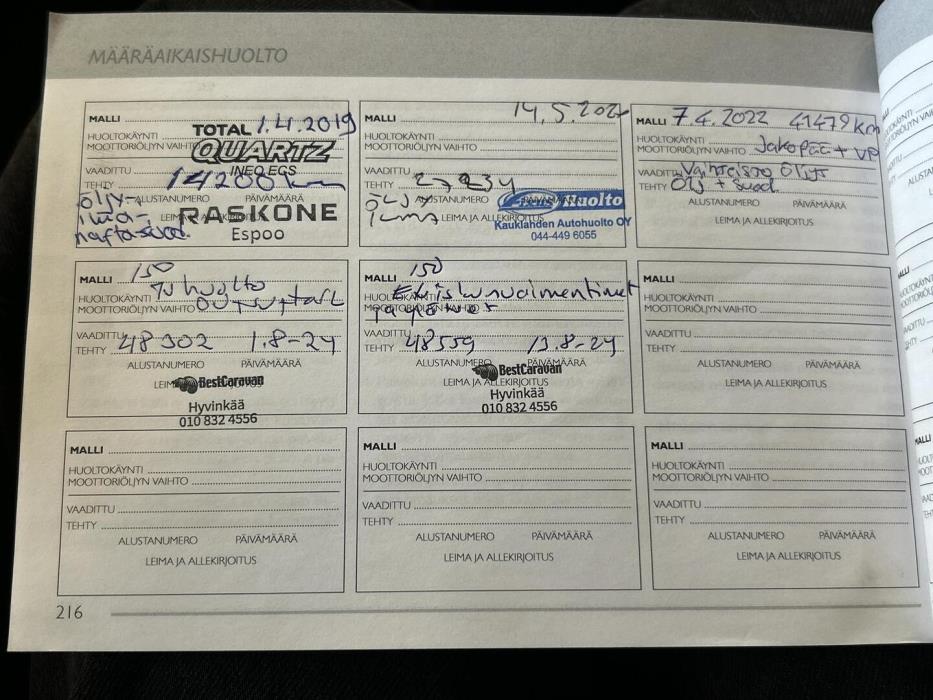 MÄÄRÄAIKAISHUOLTO
MALLI 1.4.2019
TOTAL
HUOLTOKÄYNTI
QUARTZ
MOOTTORIÖLJYN VAIHTO
INEO ECS
VAADITTU
TEHTY 14200 km
ALUSTANUMERO PÄIVÄMÄÄRÄ
öljy-
ilma-
RASKONE
Espoo
MALLI 14.5.202
HUOLTOKÄYNTI
MOOTTORIÖLJYN VAIHTO
VAADITTU
TEHTY 27234
ALUSTANUMERO
LEIMA JA ALLEKIRJOITUS
huolto
Kauklahden Autohuolto OY
044-449 6055
MALLI 7.4.2022 41479 km
HUOLTOKÄYNTI
MOOTTORIÖLJYN VAIHTO Jakopää + VP
VAADITTU
TEHTY Ölj + Suod.
ALUSTANUMERO PÄIVÄMÄÄRÄ
LEIMA JA ALLEKIRJOITUS
MALLI 150
HUOLTOKÄYNTI
MOOTTORIÖLJYN VAIHTO
VAADITTU
TEHTY 48302 1.8-24
ALUSTANUMERO PÄIVÄMÄÄRÄ
BestCaravan
Hyvinkää
010 832 4556
MALLI 150
HUOLTOKÄYNTI
VAADITTU
TEHTY 48559 13.8-24
ALUSTANUMERO PÄIVÄMÄÄRÄ
BestCaravan
LEIMA JA ALLEKIRJOITUS
Hyvinkää
010 832 4556
MALLI
HUOLTOKÄYNTI
MOOTTORIÖLJYN VAIHTO
VAADITTU
TEHTY
ALUSTANUMERO PÄIVÄMÄÄRÄ
LEIMA JA ALLEKIRJOITUS
MALLI
HUOLTOKÄYNTI
MOOTTORIÖLJYN VAIHTO
VAADITTU
TEHTY
ALUSTANUMERO PÄIVÄMÄÄRÄ
LEIMA JA ALLEKIRJOITUS
MALLI
HUOLTOKÄYNTI
MOOTTORIÖLJYN VAIHTO
VAADITTU
TEHTY
ALUSTANUMERO PÄIVÄMÄÄRÄ
LEIMA JA ALLEKIRJOITUS
MALLI
HUOLTOKÄYNTI
MOOTTORIÖLJYN VAIHTO
VAADITTU
TEHTY
ALUSTANUMERO PÄIVÄMÄÄRÄ
LEIMA JA ALLEKIRJOITUS
216